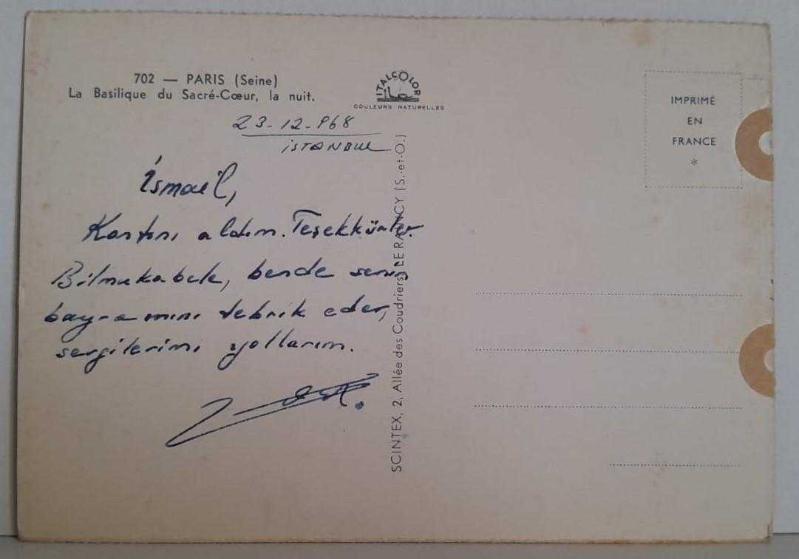 702 — PARIS (Seine)
La Basilique du Sacré-Cœur, la nuit.
ITALCOLOR
COULEURS NATURELLES
IMPRIMÉ
EN
FRANCE
*
23-12-968
İSTANBUL
İsmail,
Kartını aldım. Teşekkürler.
Bilmukabele, bende senin
bayramını tebrik eder,
sevgilerimi yollarım.
SCINTEX, 2, Allée des Coudriers, LE RAINCY (S.-et-O.)